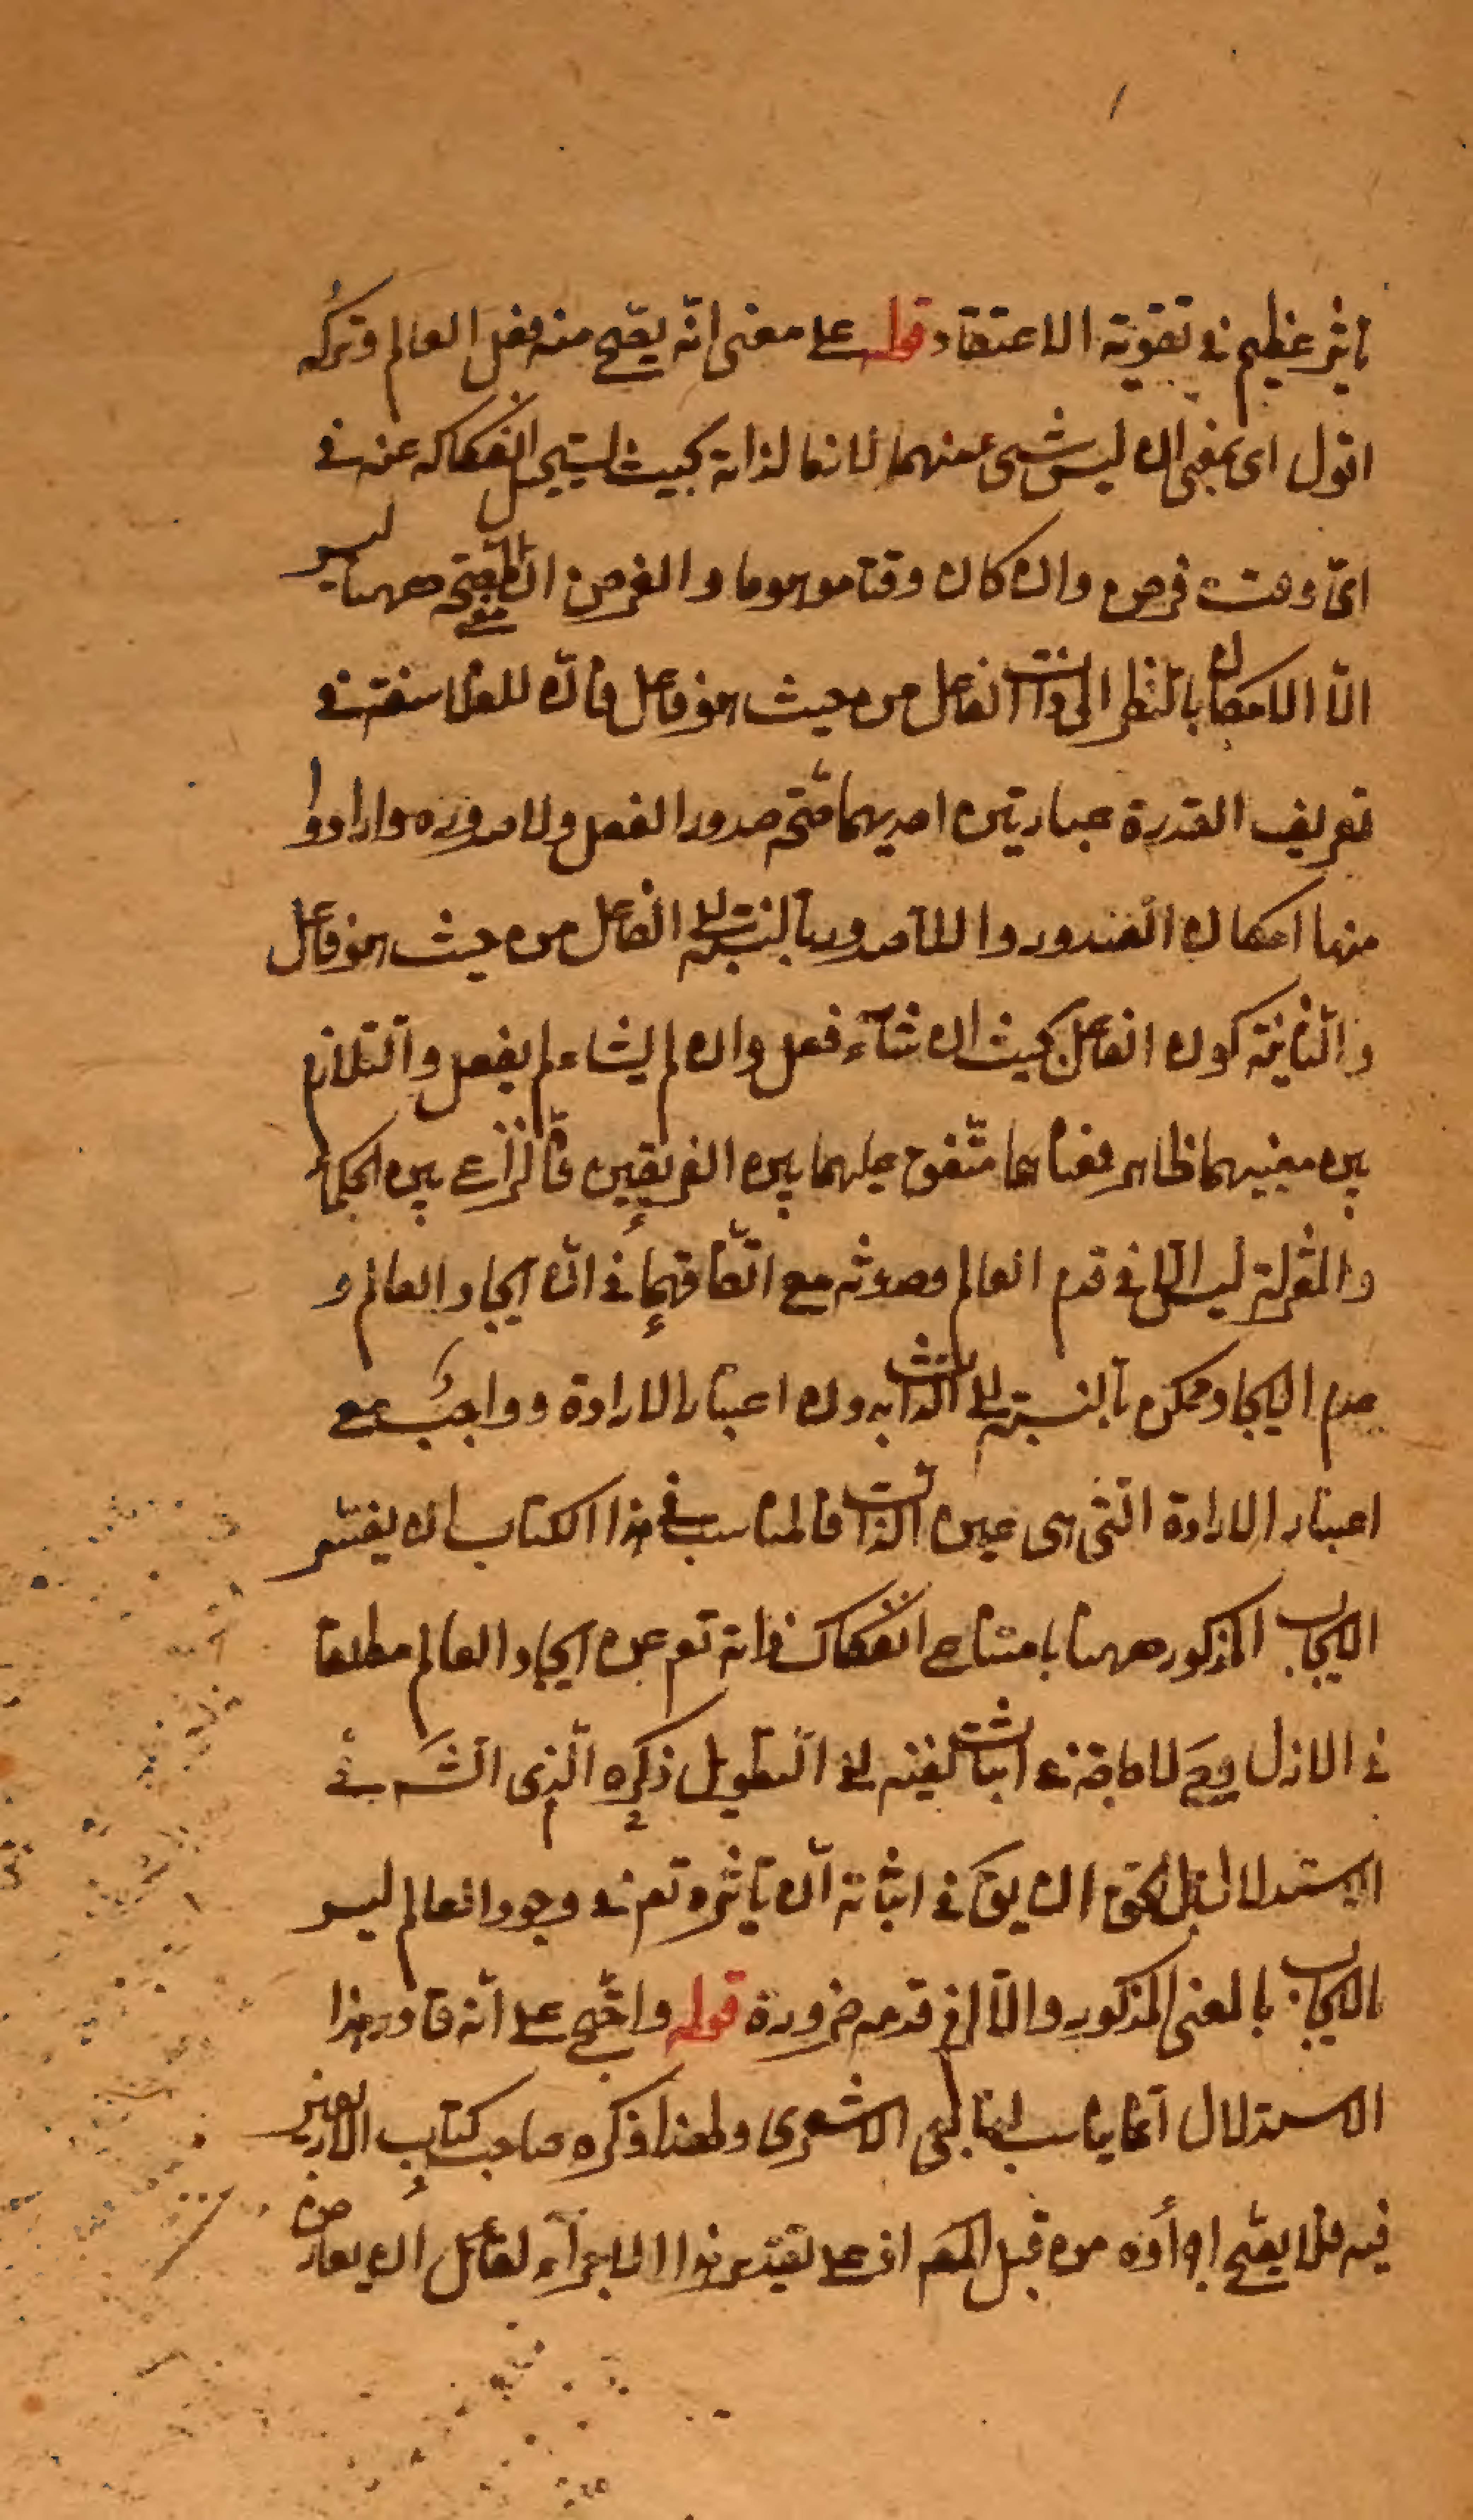 تأثير عظيم في تقوية الاعتقاد قوله على معنى انّه يصّح منه فعل العالم وتركُه
اقول اى بمعنى ان ليس شىء منهما لازما لذاته بحيث يستحيل انفكاكه عنه في
اىّ وقت فرض وان كان وقتا موهوما والغرض انّ الصّحة ههنا ليس
الّا الامكان بالنّظر الى ذات الفاعل من حيث هو فاعل فانّ للفلاسفة في
تعريف القدرة عبارتين احديهما صّحة صدور الفعل ولا صدوره وارادوا
منها امكان الصدور واللّاصدور بالنّسبة الى الفاعل من حيث هو فاعل
والثّانية كون الفاعل بحيث ان شآء فعل وان لم يشاء لم يفعل والتّلازم
بين معنييهما ظاهر فمعناهما متّفق عليهما بين الفريقين فالنّزاع بين الحكمآء
والمعتزلة ليس الّا في قدم العالم وحدوثه مع اتّفاقهما في انّ ايجاد العالم و
عدم الايجاد ممكن بالنّسبة الى الذّات بدون اعتبار الارادة وواجب مع
اعتبار الارادة الّتى هى عين الذّات فالمناسب في هذا الكتاب ان يفسّر
الايجاب المذكور ههنا بامتناع انفكاك ذاته تع عن ايجاد العالم مطلقا
في الازل وح لا حاجة في اثبات نفيه الى التّطويل ذكره الّذى الشّ في
الاستدلال بل الحقّ ان يقَ في اثباته انّ تأثيره تع في وجود العالم ليس
بالايجاب بالمعنى المذكور والّا لزم قدمه ضرورة قوله واحتّج على انّه قادر هذا
الاستدلال انّما يناسب لمذهب الاشعرى ولهذا ذكره صاحب كتاب الاربعين
فيه فلا يصّح ايرادُه من قبل المصَ اذ على تقدير هذا الاجرآء لقائل ان يعارض